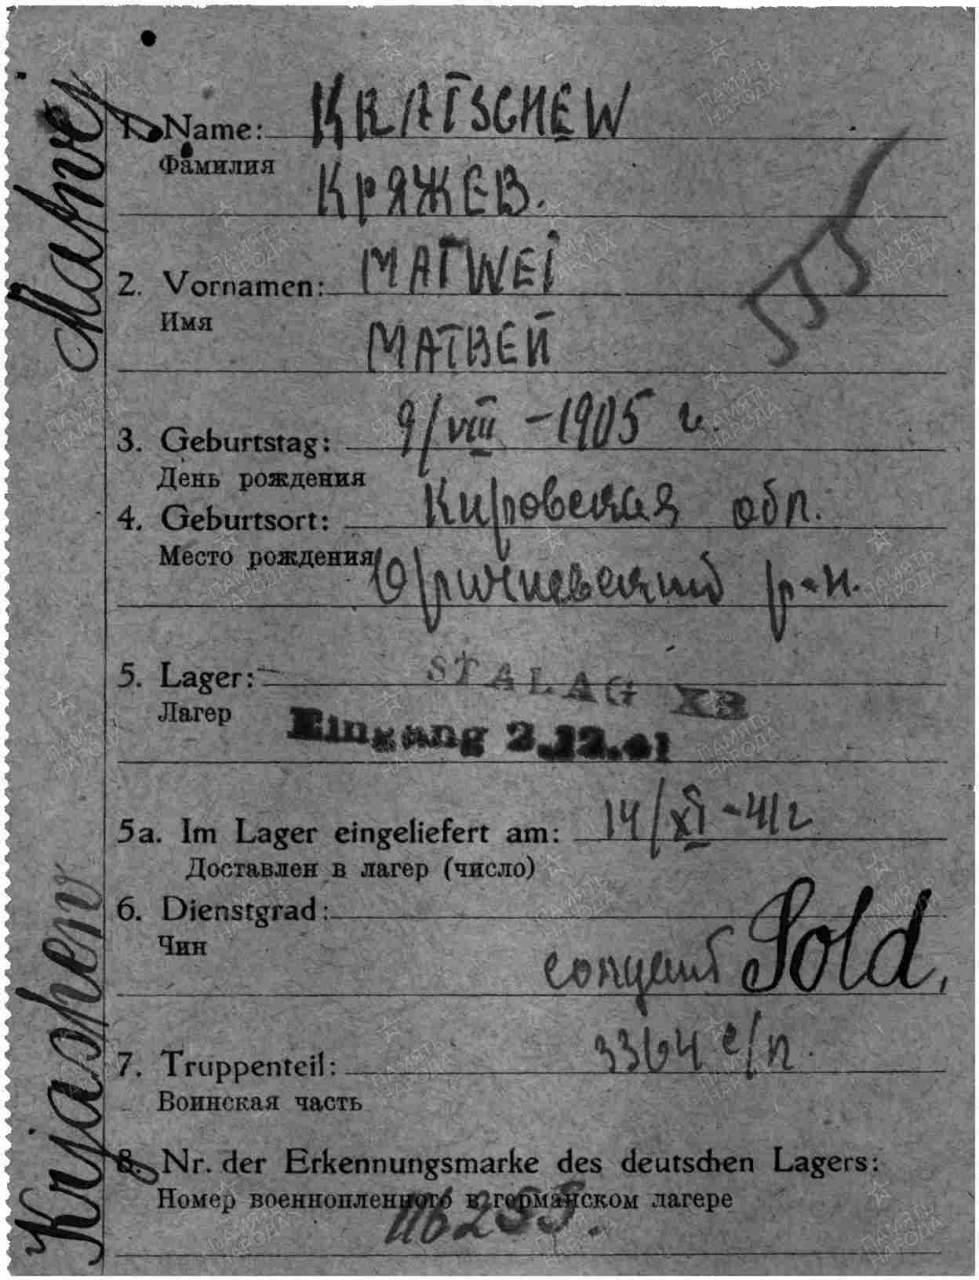 Matwej
Krjashew
1. Name: KRATSCHEW
Фамилия
КРЯЖЕВ.
2. Vornamen: MATWEI
Имя
МАТВЕЙ
3. Geburtstag: 9/VIII -1905 г.
День рождения
4. Geburtsort: Кировская обл.
Место рождения Оричневский р-н.
5. Lager: STALAG XB
Лагер
Eingang 2.12.41
5a. Im Lager eingeliefert am: 14/XI-41г
Доставлен в лагер (число)
6. Dienstgrad:
Чин
солдат Sold.
7. Truppenteil: 3364 с/п.
Воинская часть
8. Nr. der Erkennungsmarke des deutschen Lagers:
Номер военнопленного в германском лагере